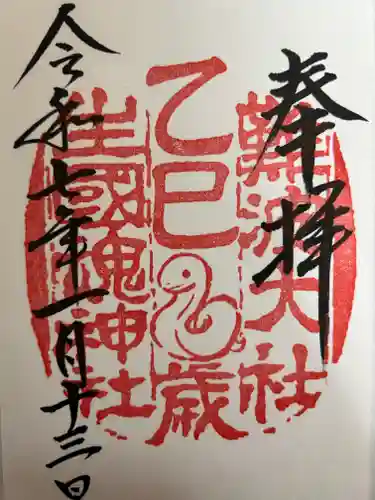 奉拝
難波大社
乙巳歳
生國魂神社
令和七年一月十三日